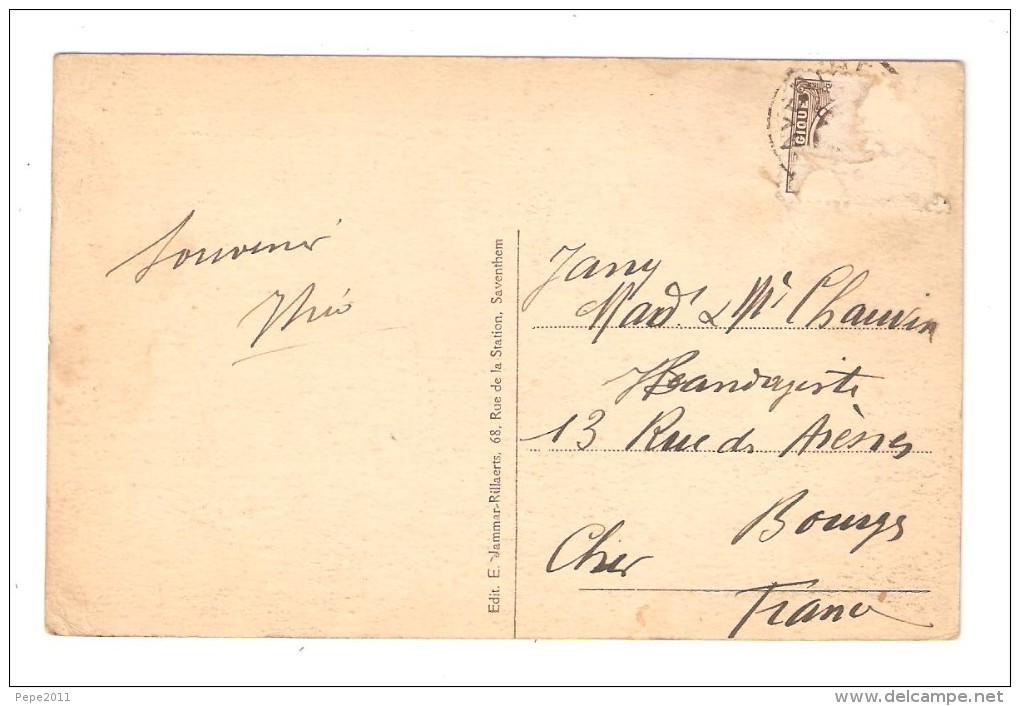 Souvenir
Edit. E. Jammar-Rillaerts, 68, Rue de la Station, Saventhem
GIQUE
Jany
Mad. & Mr Chauvin
Bandagiste
13 Rue des Arènes
Bourges
Cher
France
Pepe2011
delcampe.net